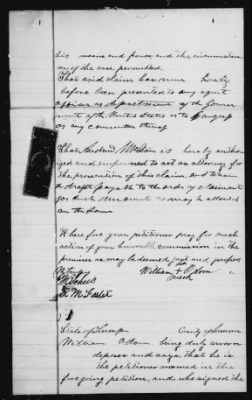 his means and power and the circumstan
ces of the case permitted.
That said claim has never been
before been presented to any agent
officer or department of the Govern
ment of the United States or to Congress
or any committee thereof
That Andrew is hereby autho
rized and empowered to act as attorney for
the prosecution of this claim, and to
a draft payable to the order of claimant
for such amount as may be allowed
on the same
Wherefore your petitioner prays for such
action of your honorable commission in the
premises as may be deemed just and proper
William + Odom
mark
R M
State of County of
William Odom being duly sworn
deposes and says that he is
the petitioner named in the
foregoing petition, and who signed the